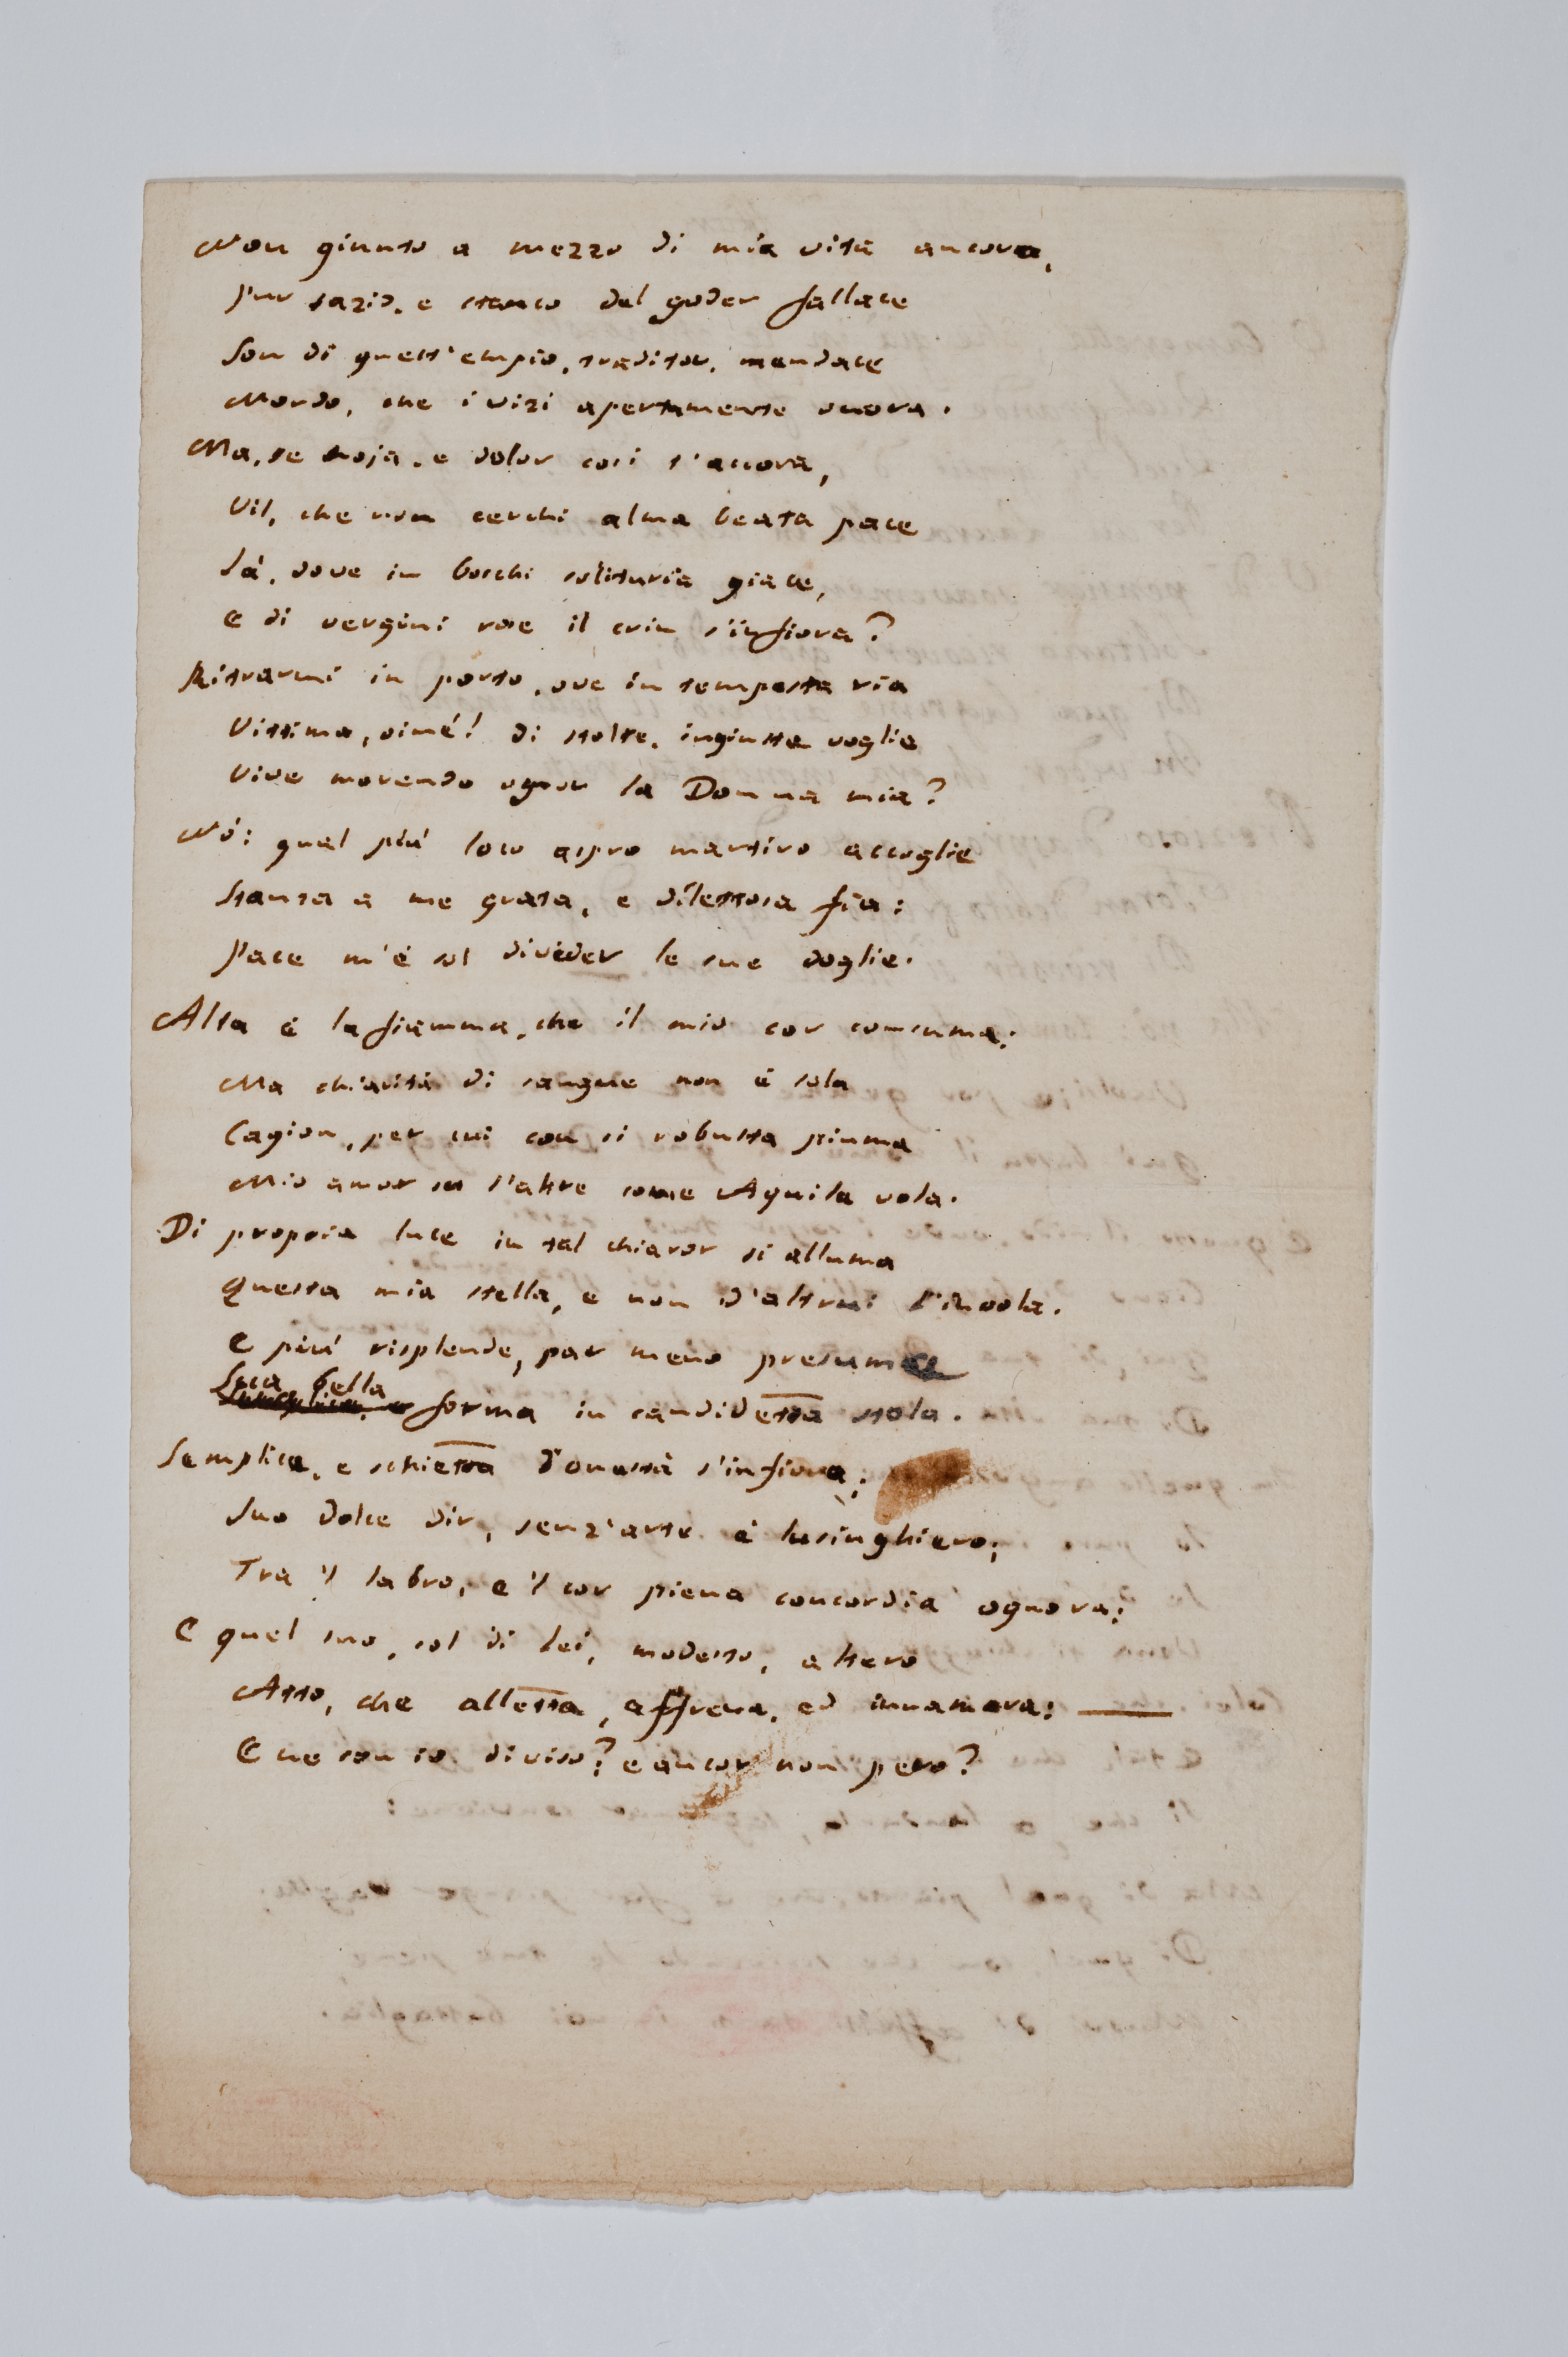 Non giunto a mezzo di mia vita ancora,
Pur sazio, e stanco del goder fallace
Son di quest'empio, traditor, mendace
Mondo, che i vizi apertamente onora.
Ma, se noja, e dolor così t'accora,
Vil, che non cerchi alma beata pace
Là, dove in boschi solitaria giace,
E di vergini rose il crin s'infiora?
Ritrarmi in porto, ove in tempesta ria
Vittima, oimé! di stolte, ingiuste voglie
Vive morendo ognor la Donna mia?
Nò: qual più loco aspro martiro accoglie
Stanza a me grata, e dilettosa fia:
Pace m'è sol divider le sue doglie.
Alta è la fiamma, che il mio cor consuma:
Ma chiarità di sangue non è sola
Cagion, per cui con sì robusta piuma
Mio amor su l'altre come Aquila vola.
Di propria luce in tal chiaror si alluma
Questa mia stella, e non d'altrui l'invola.
E più risplende, par meno presuma
Sua bella
forma in candidetta stola.
Semplice, e schietta d'onestà s'infiora;
Suo dolce dir, senz'arte è lusinghiero;
Tra 'l labro, e 'l cor piena concordia ognora:
E quel suo, sol di lei, modesto, altero
Atto, che alletta, affrena, ed innamora:
E ne son io diviso? e ancor non pero?